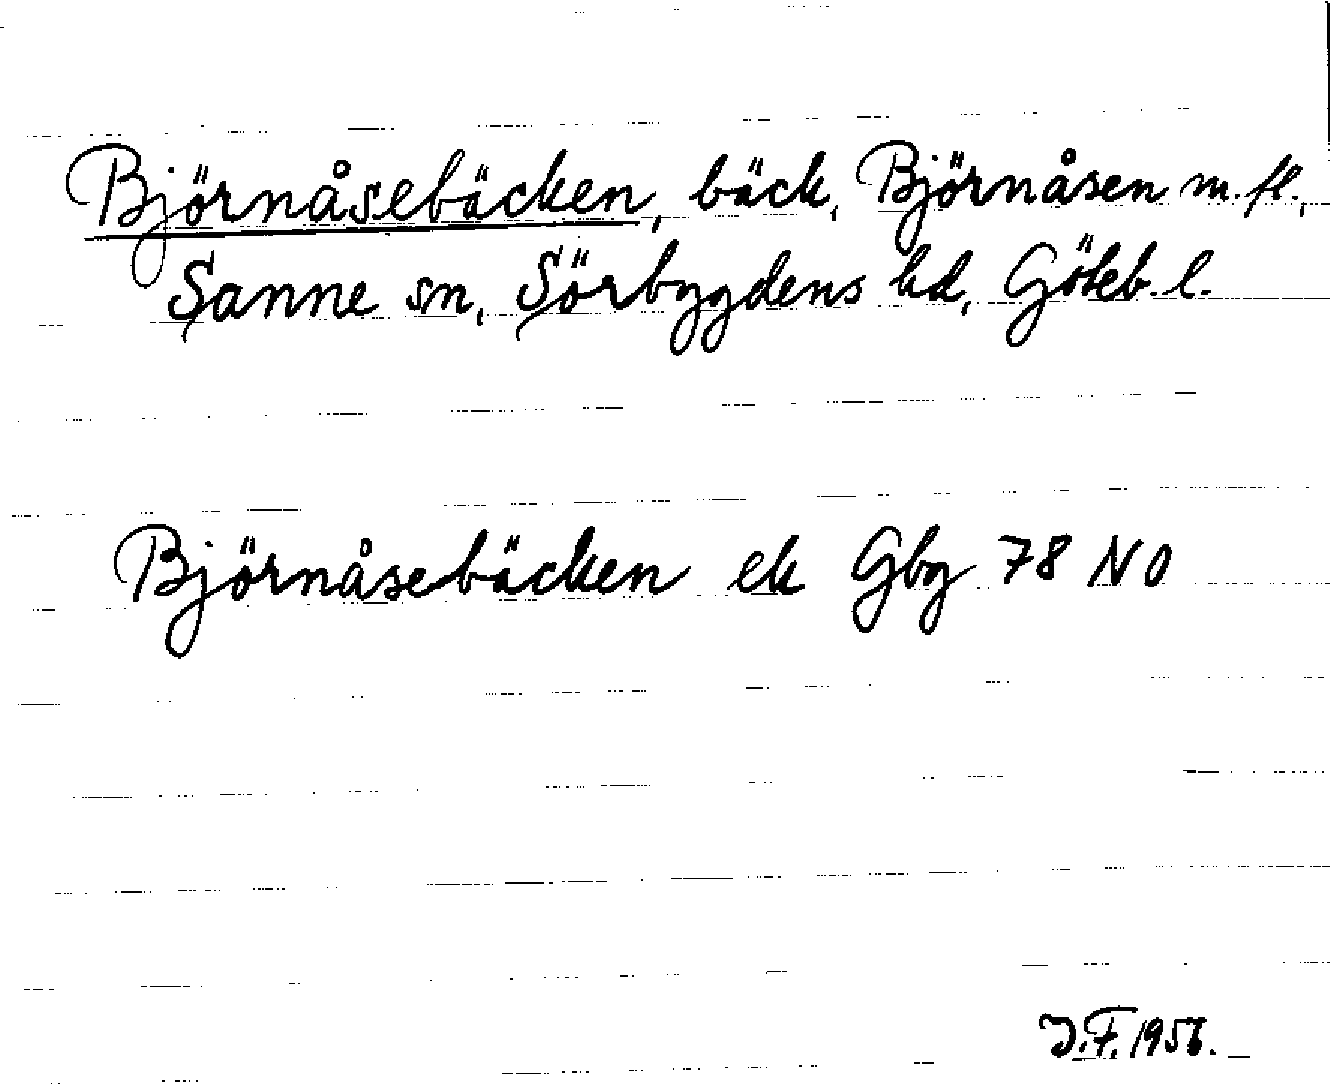 Björnåsebäcken, bäck, Björnåsen m.fl.,
Sanne sn, Sörbygdens hd, Göteb. l.
Björnåsebäcken ek Gbg 78 NO
J.F. 1956.